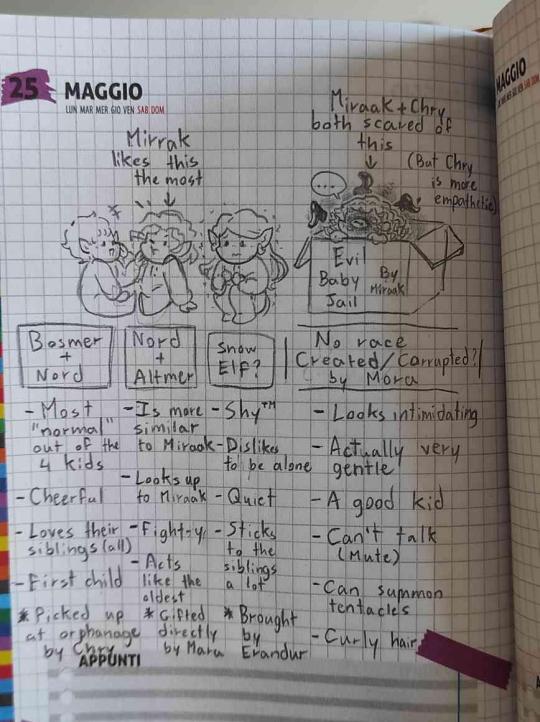 25 MAGGIO
LUN MAR MER GIO VEN SAB DOM
Mirrak
likes this
the most
Miraak + Chry
both scared of
this
(But Chry
is more
empathetic)
...
Evil
Baby
Jail
By
Miraak
Bosmer
+
Nord
- Most
"normal"
out of the
4 kids
- Cheerful
- Loves their
siblings (all)
- First child
* Picked up
at orphanage
by Chry
Nord
+
Altmer
- Is more
similar
to Miraak
- Looks up
to Miraak
- Fight-y
- Acts
like the
oldest
* Gifted
directly
by Mora
Snow
Elf?
- Shy™
- Dislikes
to be alone
- Quiet
- Sticks
to the
siblings
a lot
* Brought
by
Erandur
No race
Created/Corrupted?
by Mora
- Looks intimidating
- Actually very
gentle
- A good kid
- Can't talk
(Mute)
- Can summon
tentacles
- Curly hair
APPUNTI
MAGGIO